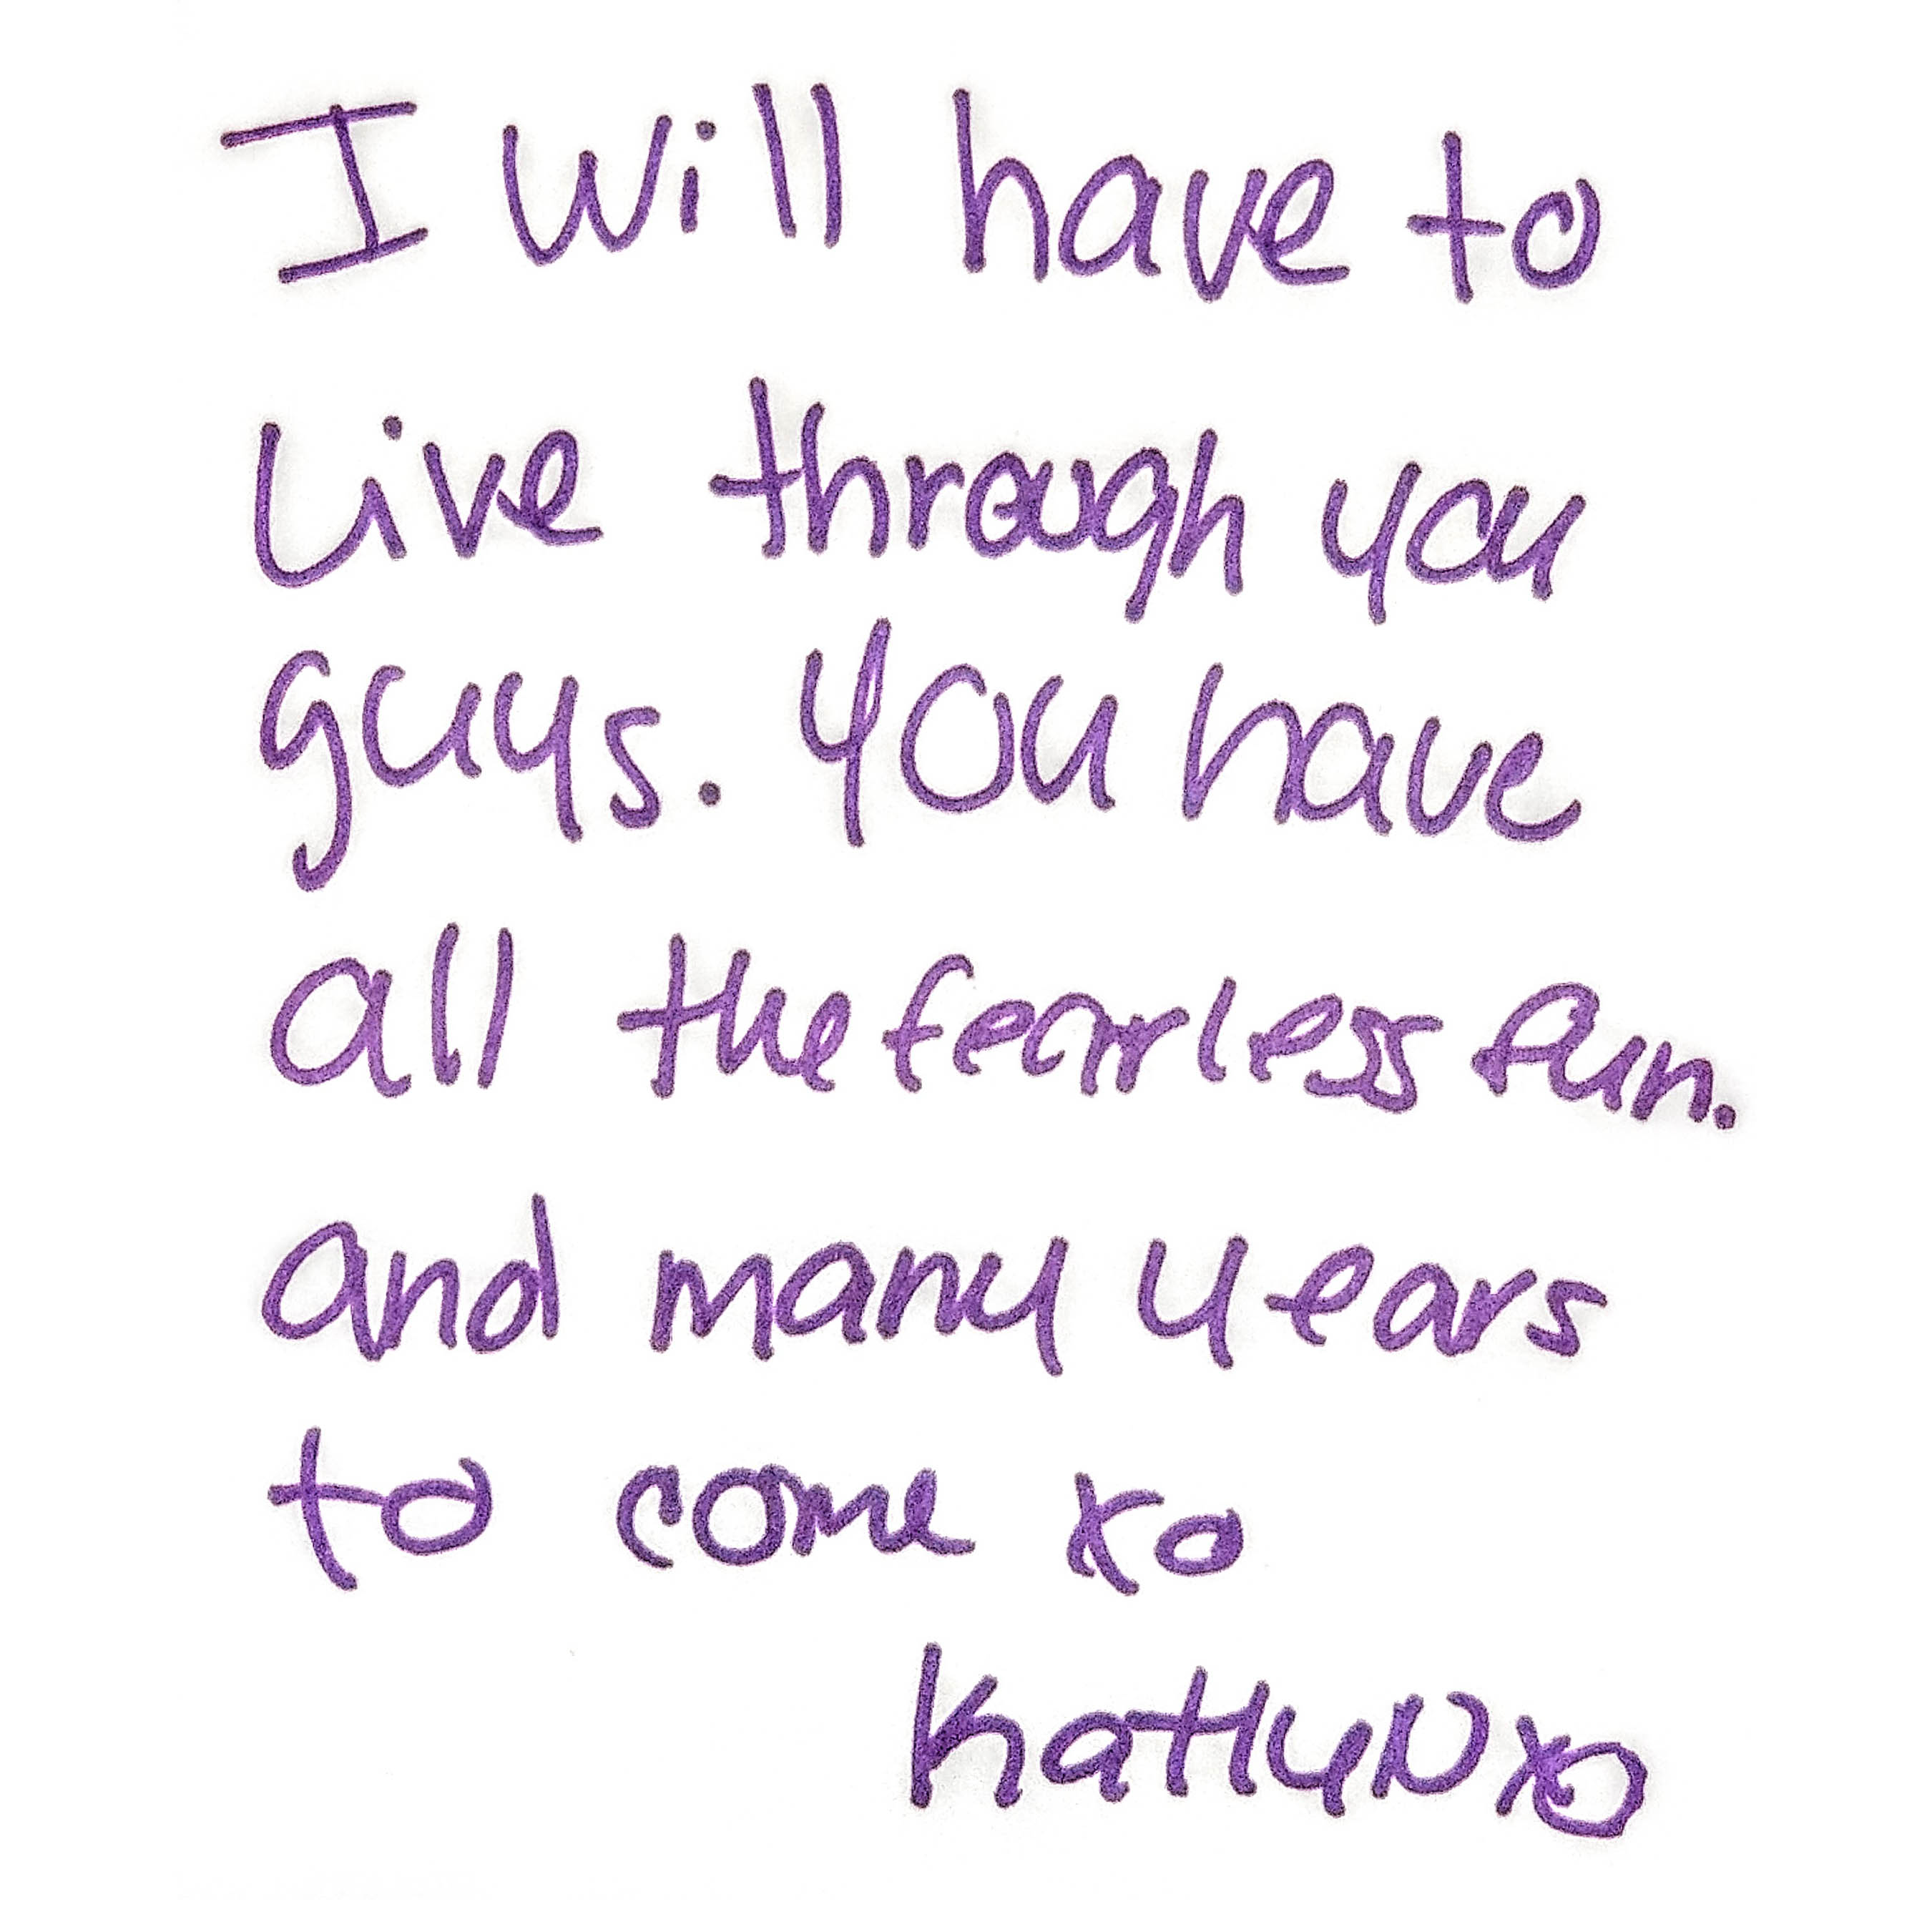 I will have to
Live through you
guys. You have
all the fearless fun.
and many years
to come xo
KatHyN xo